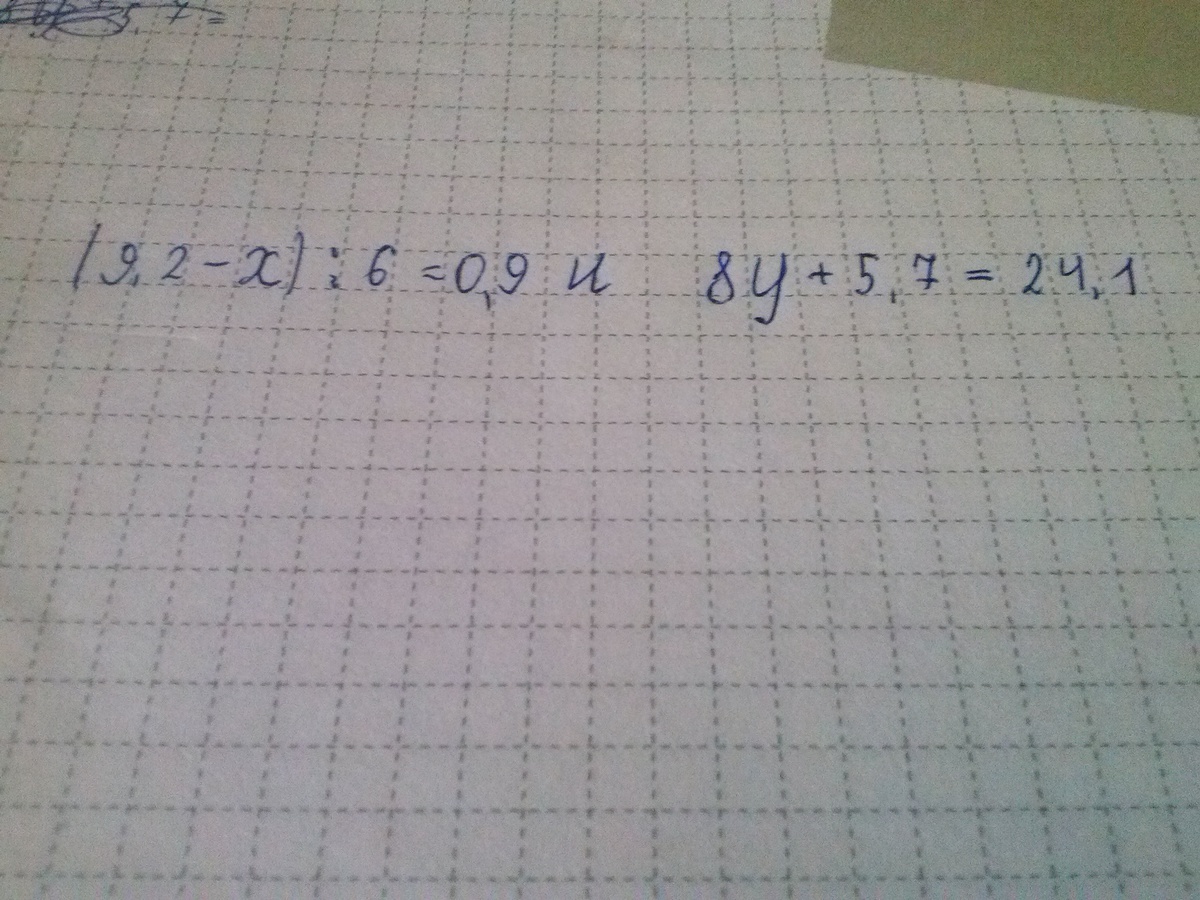 5,7=
(9,2-x):6=0,9 и 8y+5,7=24,1